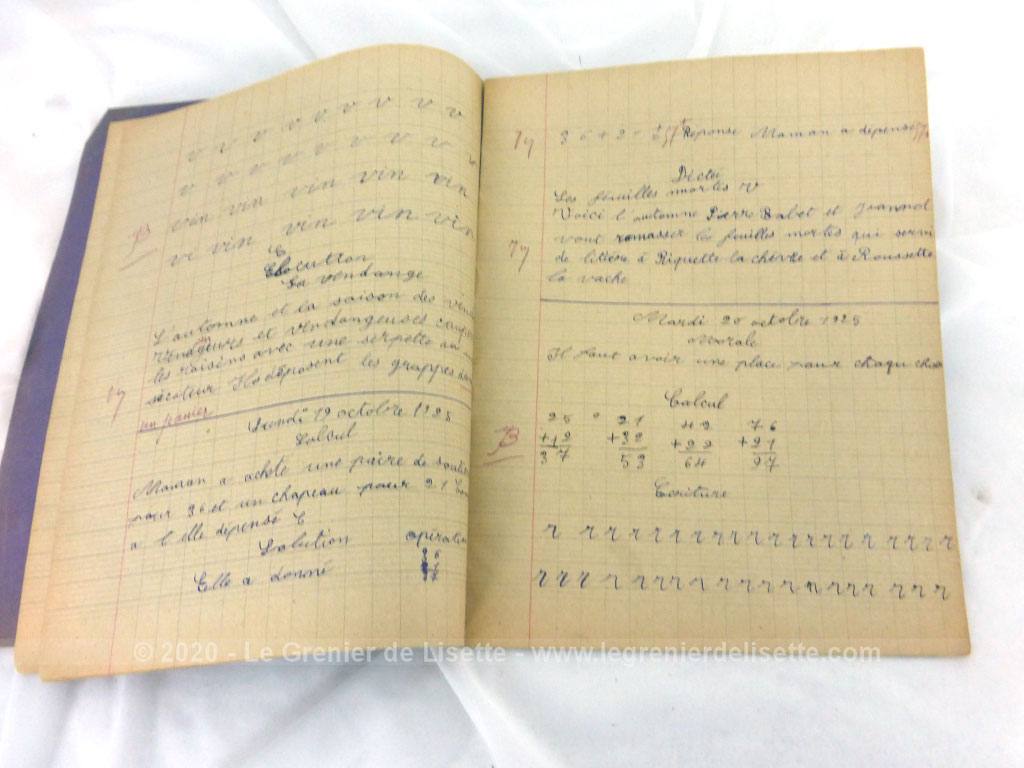 v v v v v v v v v
v v v v v v v v v v
vin vin vin vin vin
B
vi vin vin vin vin
Elocution
La vendange
L'automne et la saison des
vendgeurs et vendangeuses
les raisins avec une serpette ou
sécateur Ils déposent les grappes
un panier
Lundi 19 octobre 1925
Calcul
Maman a acheté une paire de
pour 36 et un chapeau pour 21
a t elle dépensé
Solution opération
36
21
57
Elle a donné
Réponse Maman a dépensé
Dictée
Les feuilles mortes V
Voici l automne Pierre Babet et Jeannot
vont ramasser les feuilles mortes qui
de litière à Biquette la chèvre et à Roussette
la vache
Mardi 20 octobre 1925
Morale
Il faut avoir une place pour chaqu
Calcul
25 21 42 76
+12 +32 +22 +21
37 53 64 97
B
Ecriture
r r r r r r r r r r r r r r r r r
r r r r r r r r r r r r r r r r r r
© 2020 - Le Grenier de Lisette - www.legrenierdelisette.com